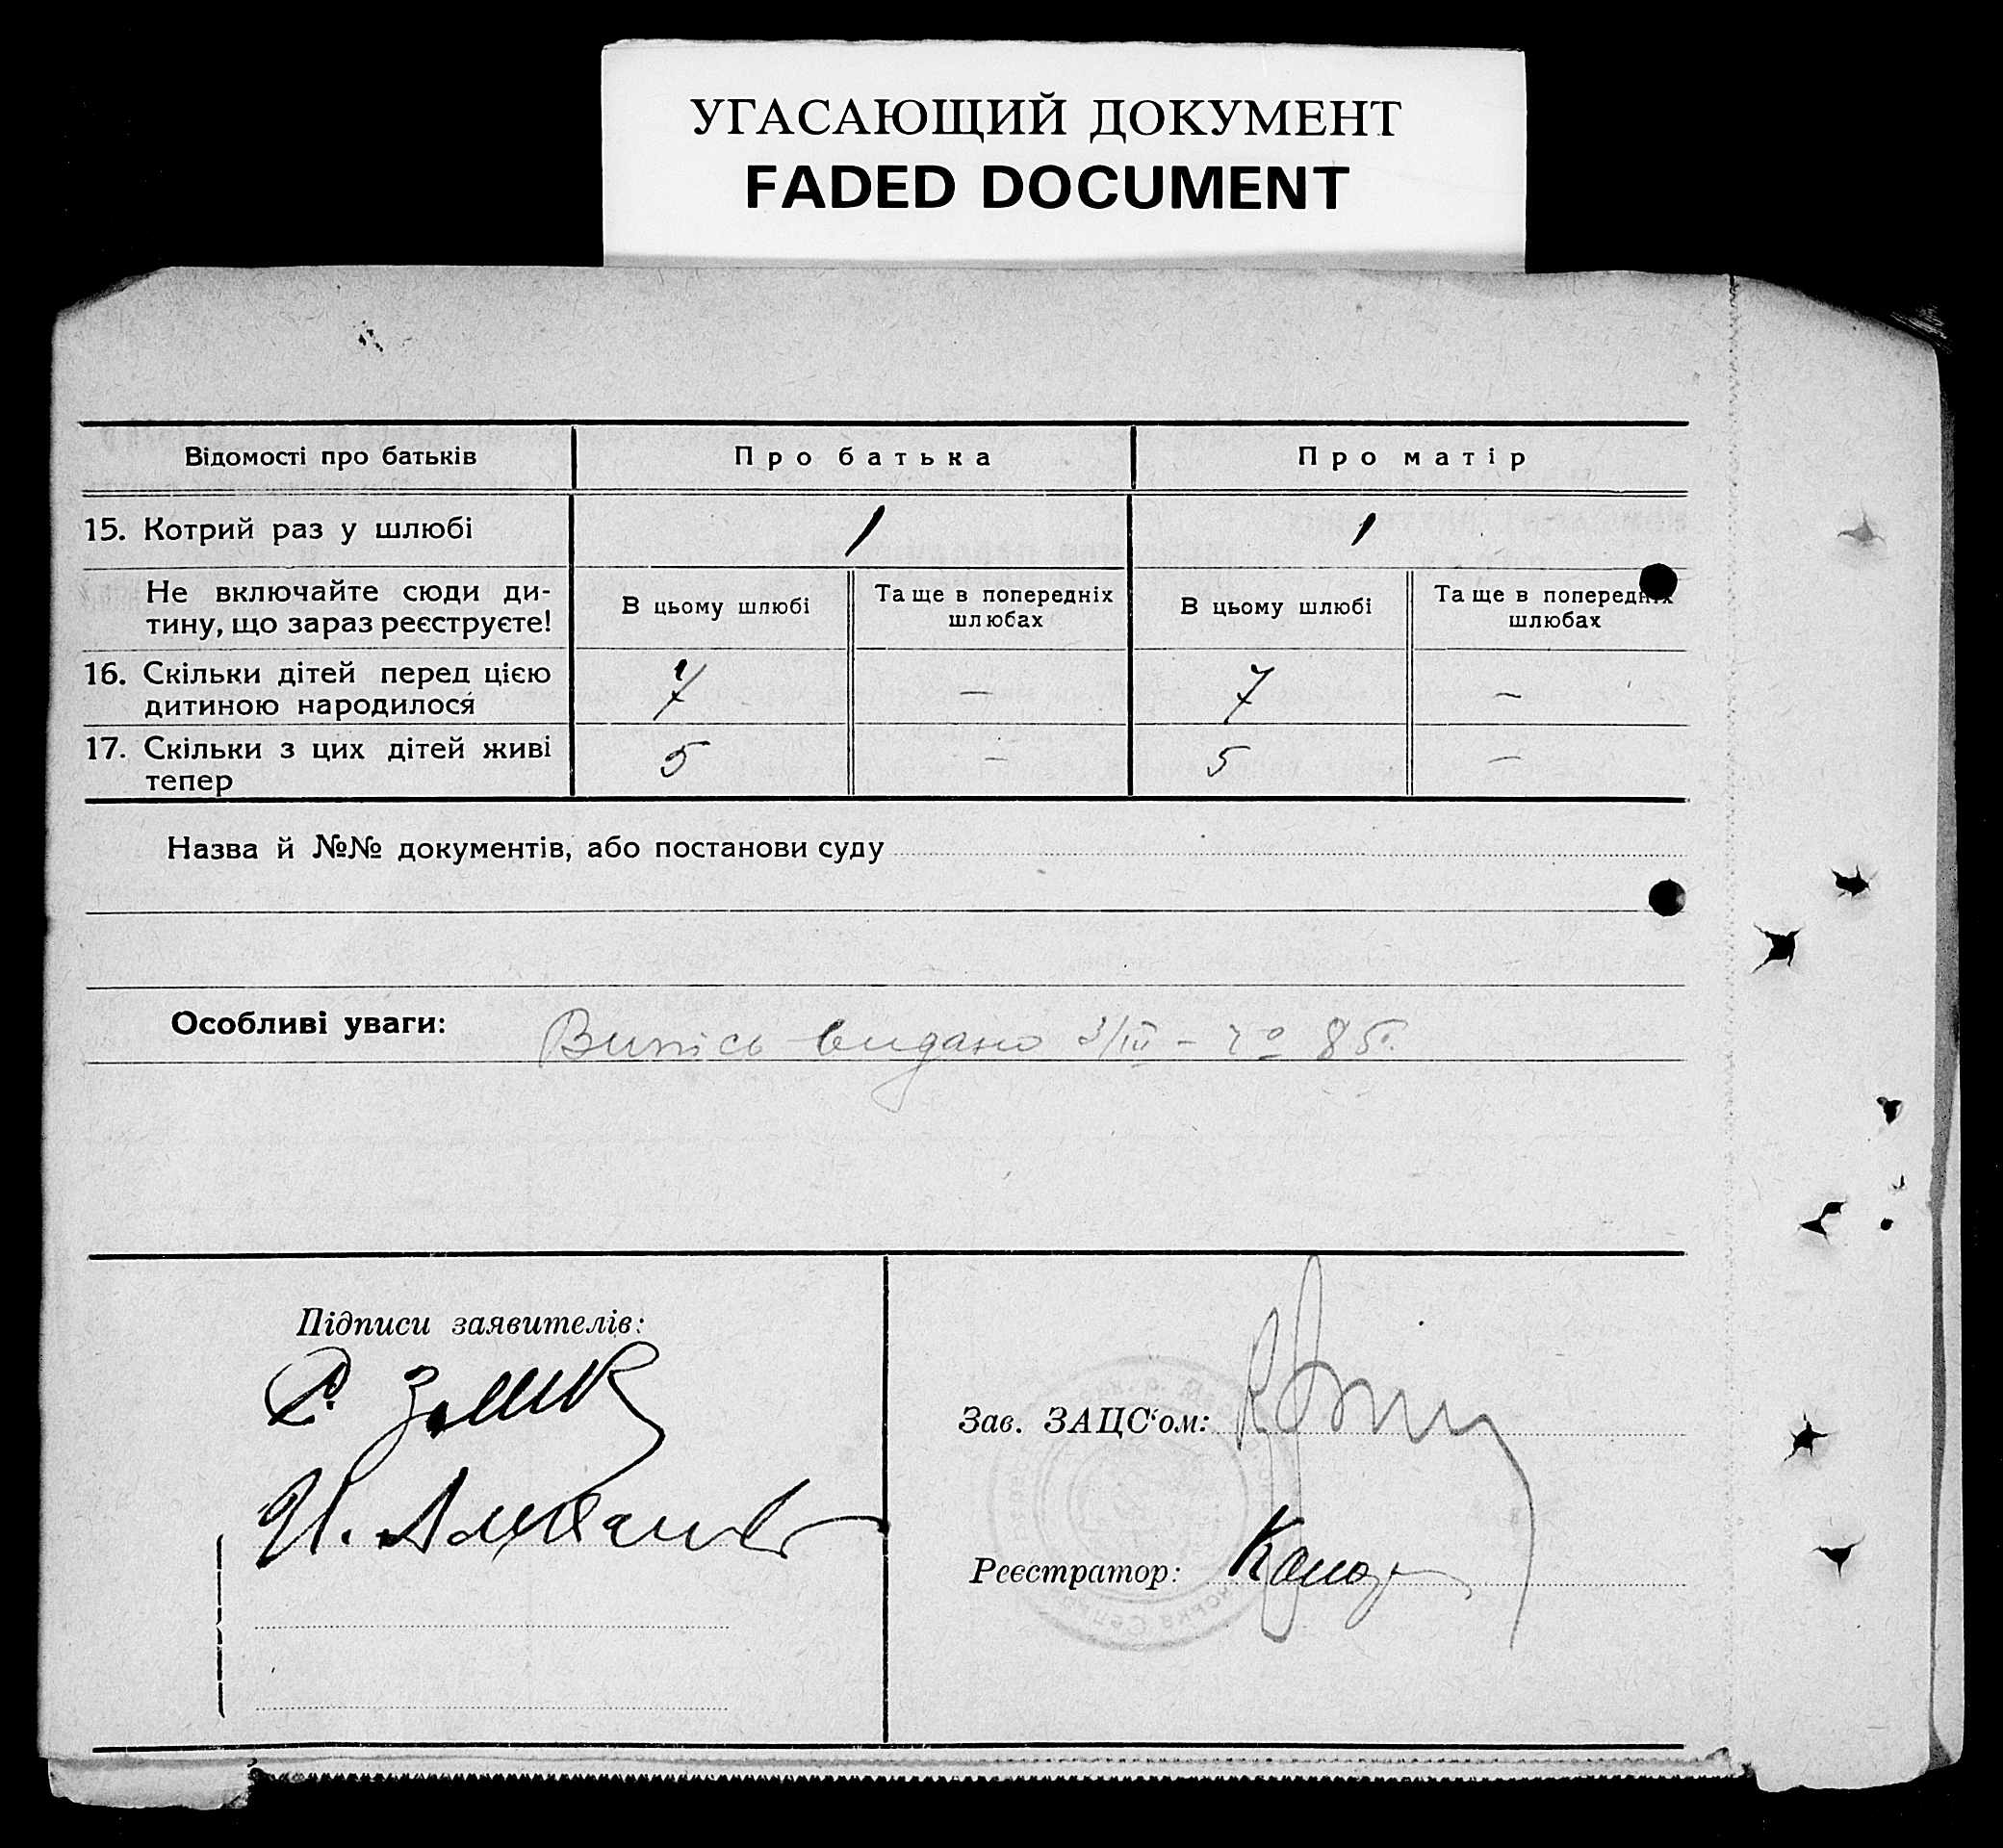 УГАСАЮЩИЙ ДОКУМЕНТ
FADED DOCUMENT
Відомості про батьків
Про батька
Про матір
15. Котрий раз у шлюбі
1
1
Не включайте сюди ди-
тину, що зараз реєструєте!
В цьому шлюбі
Та ще в попередніх
шлюбах
В цьому шлюбі
Та ще в попередніх
шлюбах
16. Скільки дітей перед цією
дитиною народилося
7
—
7
—
17. Скільки з цих дітей живі
тепер
5
—
5
—
Назва й №№ документів, або постанови суду
Особливі уваги:
Випісь видано 3/III – 85.
Підписи заявителів:
Зав. ЗАЦС‘ом:
Реєстратор: